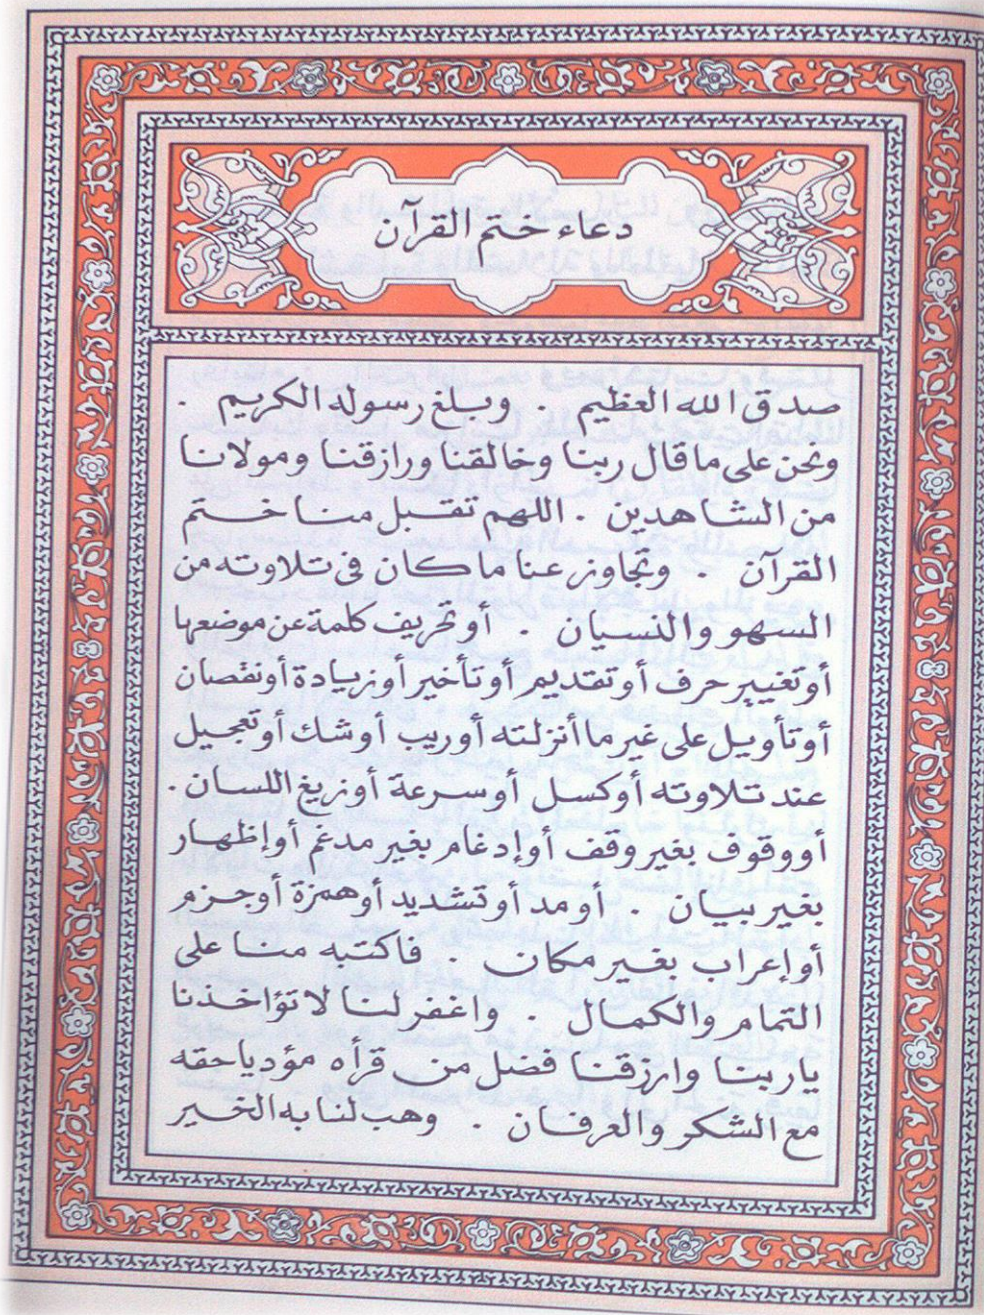 دعاء ختم القرآن
صدق الله العظيم . وبلغ رسوله الكريم .
ونحن على ما قال ربنا وخالقنا ورازقنا ومولانا
من الشاهدين . اللهم تقبل منا ختم
القرآن . وتجاوز عنا ما كان فى تلاوته من
السهو والنسيان . أو تحريف كلمة عن موضعها
أو تغيير حرف أو تقديم أو تأخير أو زيادة أو نقصان
أو تأويل على غير ما أنزلته أو ريب أو شك أو تعجيل
عند تلاوته أو كسل أو سرعة أو زيغ اللسان .
أو وقوف بغير وقف أو إدغام بغير مدغم أو إظهار
بغير بيان . أو مد أو تشديد أو همزة أو جزم
أو إعراب بغير مكان . فاكتبه منا على
التمام والكمال . واغفر لنا لا تؤاخذنا
يا ربنا وارزقنا فضل من قرأه مؤديا حقه
مع الشكر والعرفان . وهب لنا به الخير